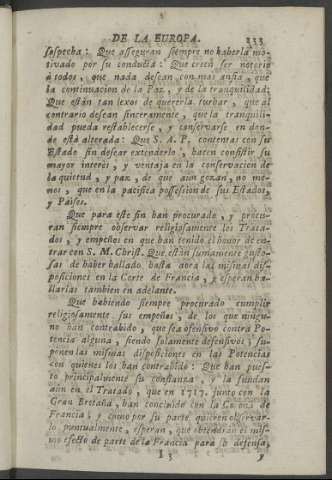 DE LA EUROPA. 133
sospecha: Que asseguran siempre no haberla mo-
tivado por su conducta: Que creen ser notorio
à todos, que nada desean con mas ansia, que
la continuacion de la Paz, y de la tranquilidad:
Que estàn tan lexos de quererla turbar, que al
contrario desean sinceramente, que la tranquili-
dad pueda restablecerse, y conservarse en don-
de està alterada: Que S. A. P. contentas con su
Estado sin desear extenderlo, hacen consistir su
mayor interès, y ventaja en la conservacion de
la quietud, y paz, de que aùn gozan, no me-
nos, que en la pacifica possession de sus Estados,
y Países.
Que para este fin han procurado, y procu-
ran siempre observar religiosamente los Trata-
dos, y empeños en que han tenido el honor de en-
trar con S. M. Christ. Que estàn sumamente gusto-
sas de haber hallado hasta aora las mismas dis-
posiciones en la Corte de Francia, y esperan ha-
llarlas tambien en adelante.
Que habiendo siempre procurado cumplir
religiosamente sus empeños, de los que ningu-
no han contrahido, que sea ofensivo contra Po-
tencia alguna, siendo solamente defensivos; su-
ponen las mismas disposiciones en las Potencias
con quienes los han contrahido: Que han pues-
to principalmente su confianza, y la fundan
aùn en el Tratado, que en 1717. junto con la
Gran Bretaña, han concluìdo con la Corona de
Francia; y como por su parte quieren observar-
lo puntualmente, esperan, que obtendràn el mis-
mo efecto de parte de la Francia para su defensa,
I 3 y